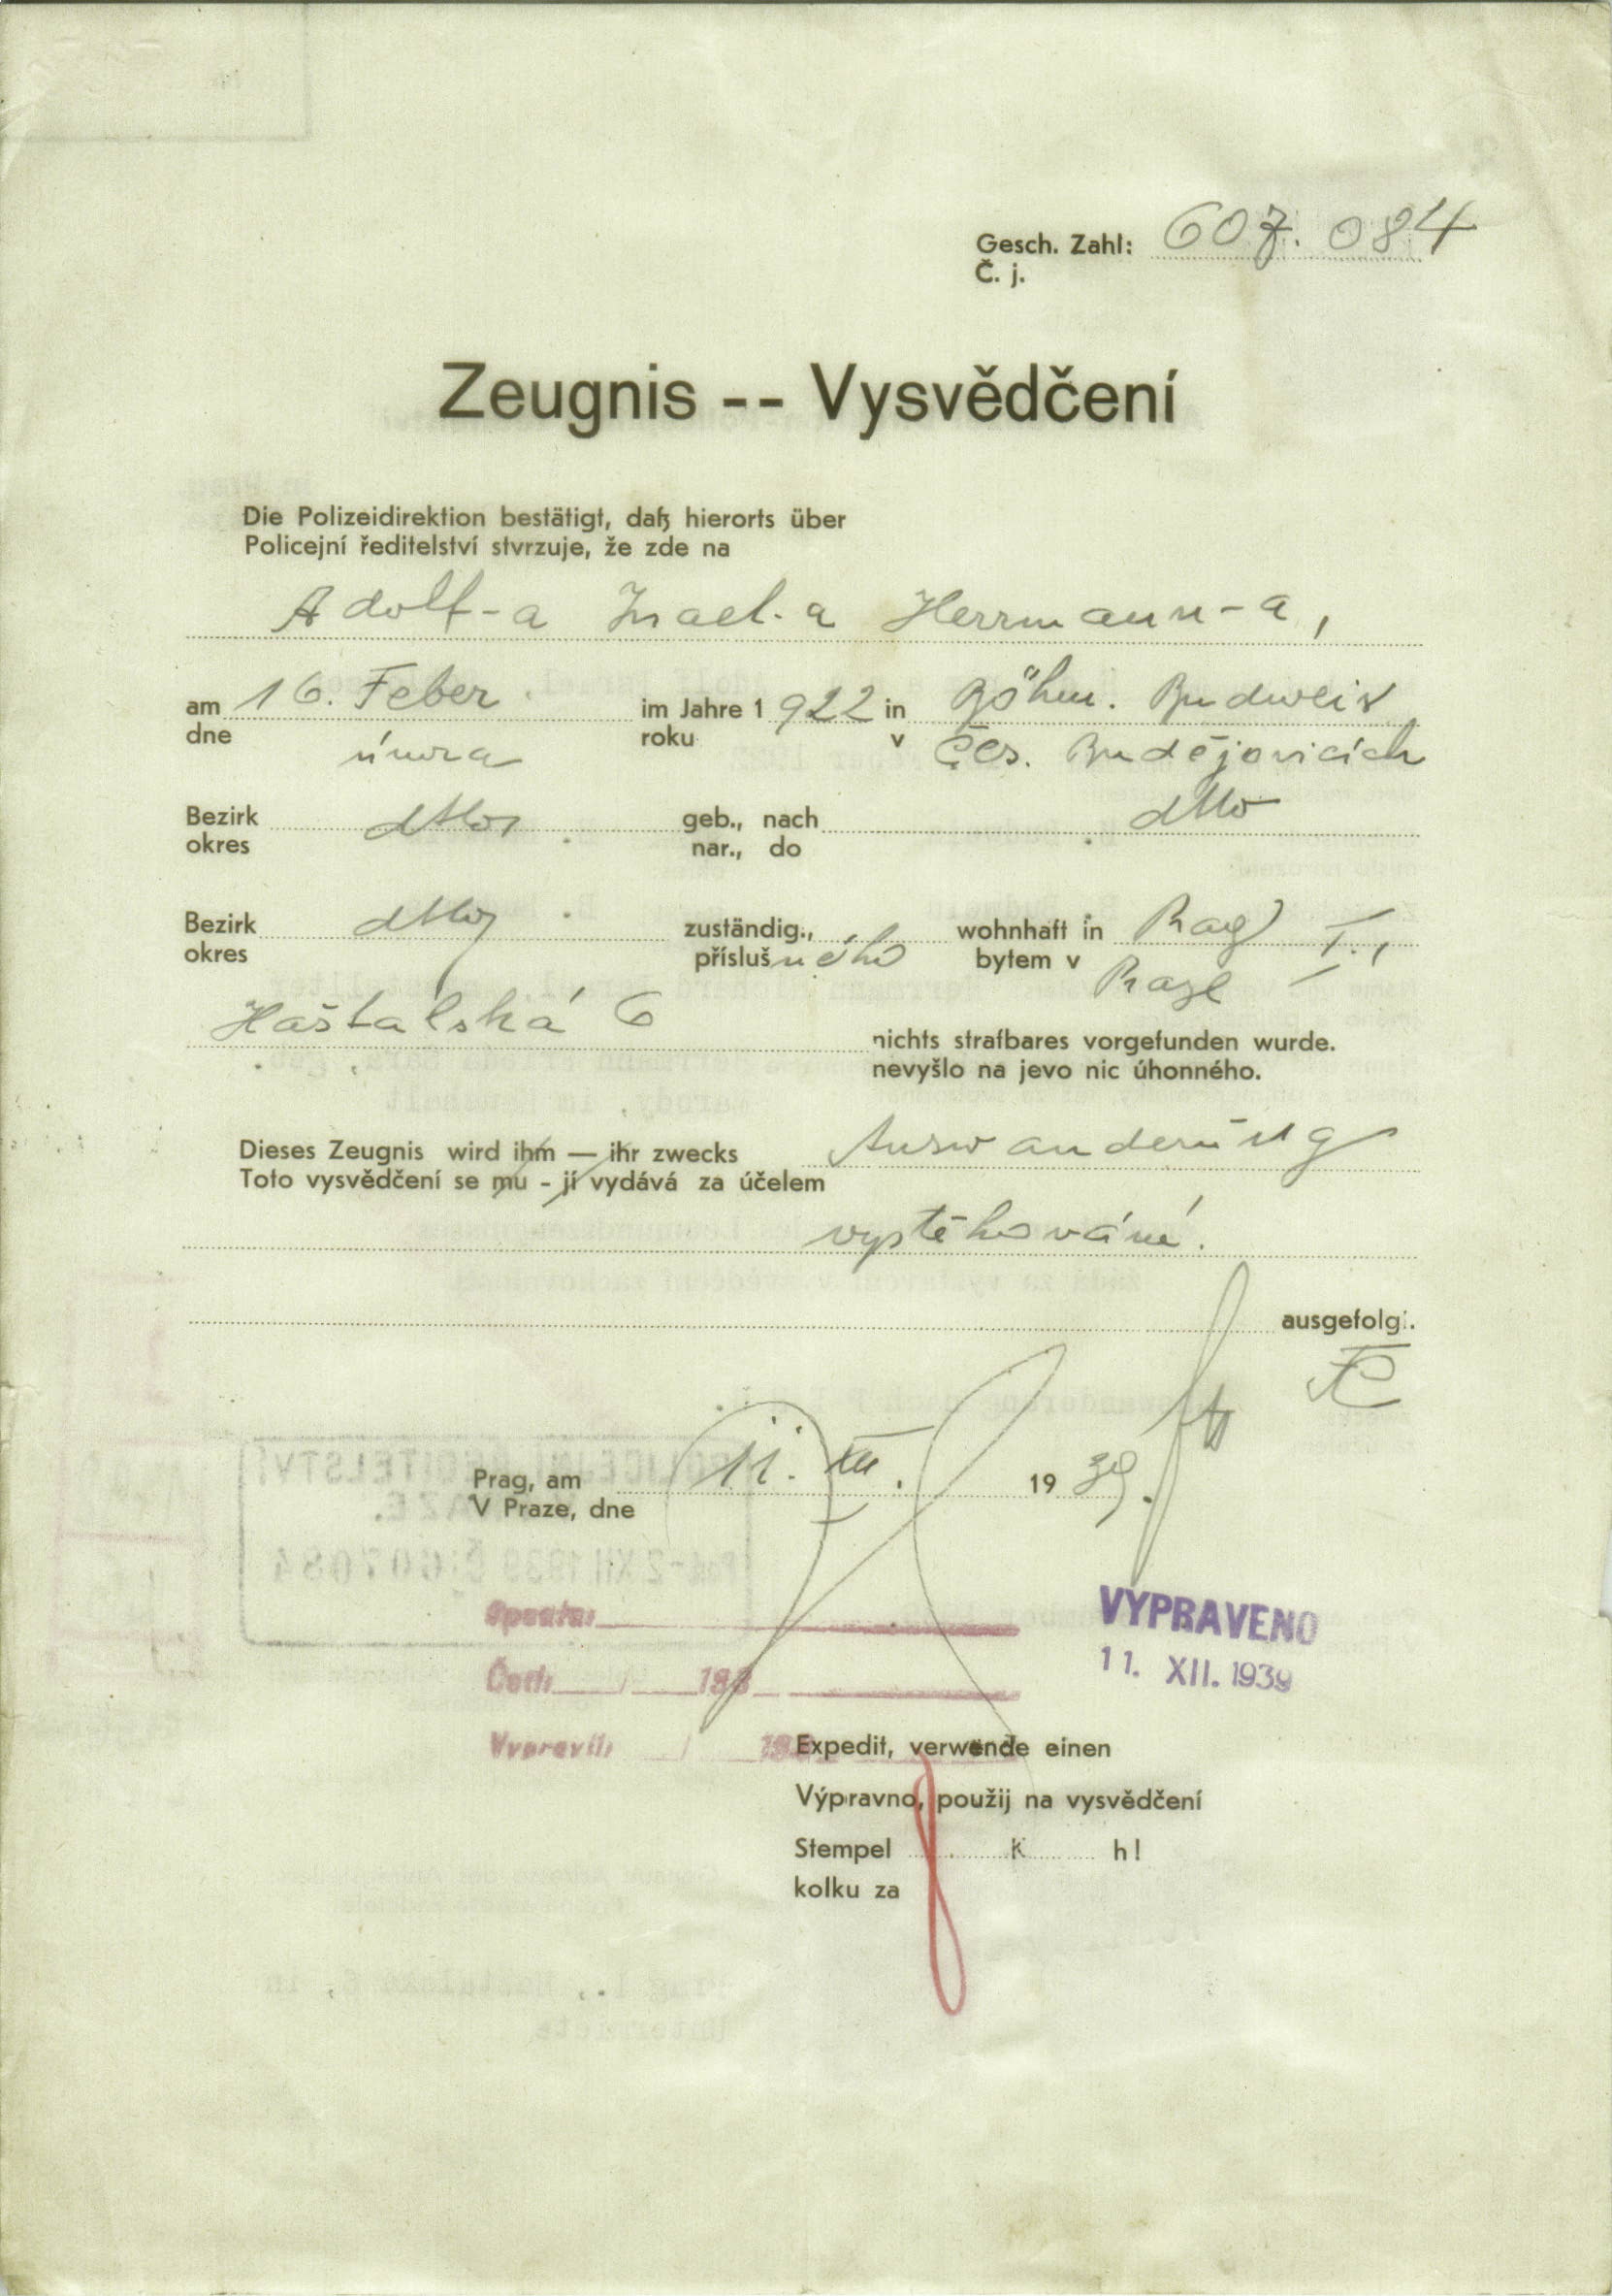 Gesch. Zahl: 607.084
Č. j.
Zeugnis -- Vysvědčení
Die Polizeidirektion bestätigt, daß hierorts über
Policejní ředitelství stvrzuje, že zde na
Adolf-a Israel-a Herrmann-a,
am 16. Feber im Jahre 1922 in Böhm. Budweis
dne února roku v Čes. Budějovicích
Bezirk dtto, geb., nach dtto
okres nar., do
Bezirk dtto, zuständig., wohnhaft in Prag I.,
okres příslušného bytem v Praze
Haštalská 6
nichts strafbares vorgefunden wurde.
nevyšlo na jevo nic úhonného.
Dieses Zeugnis wird ihm — ihr zwecks Auswanderung
Toto vysvědčení se mu - jí vydává za účelem
vystěhování.
ausgefolgt.
Prag, am 11. XII. 1939.
V Praze, dne
Opsala:
VYPRAVENO
Četl: 193
11. XII. 1939
Vypravil: 19
Expedit, verwende einen
Výpravno, použij na vysvědčení
Stempel K h!
kolku za